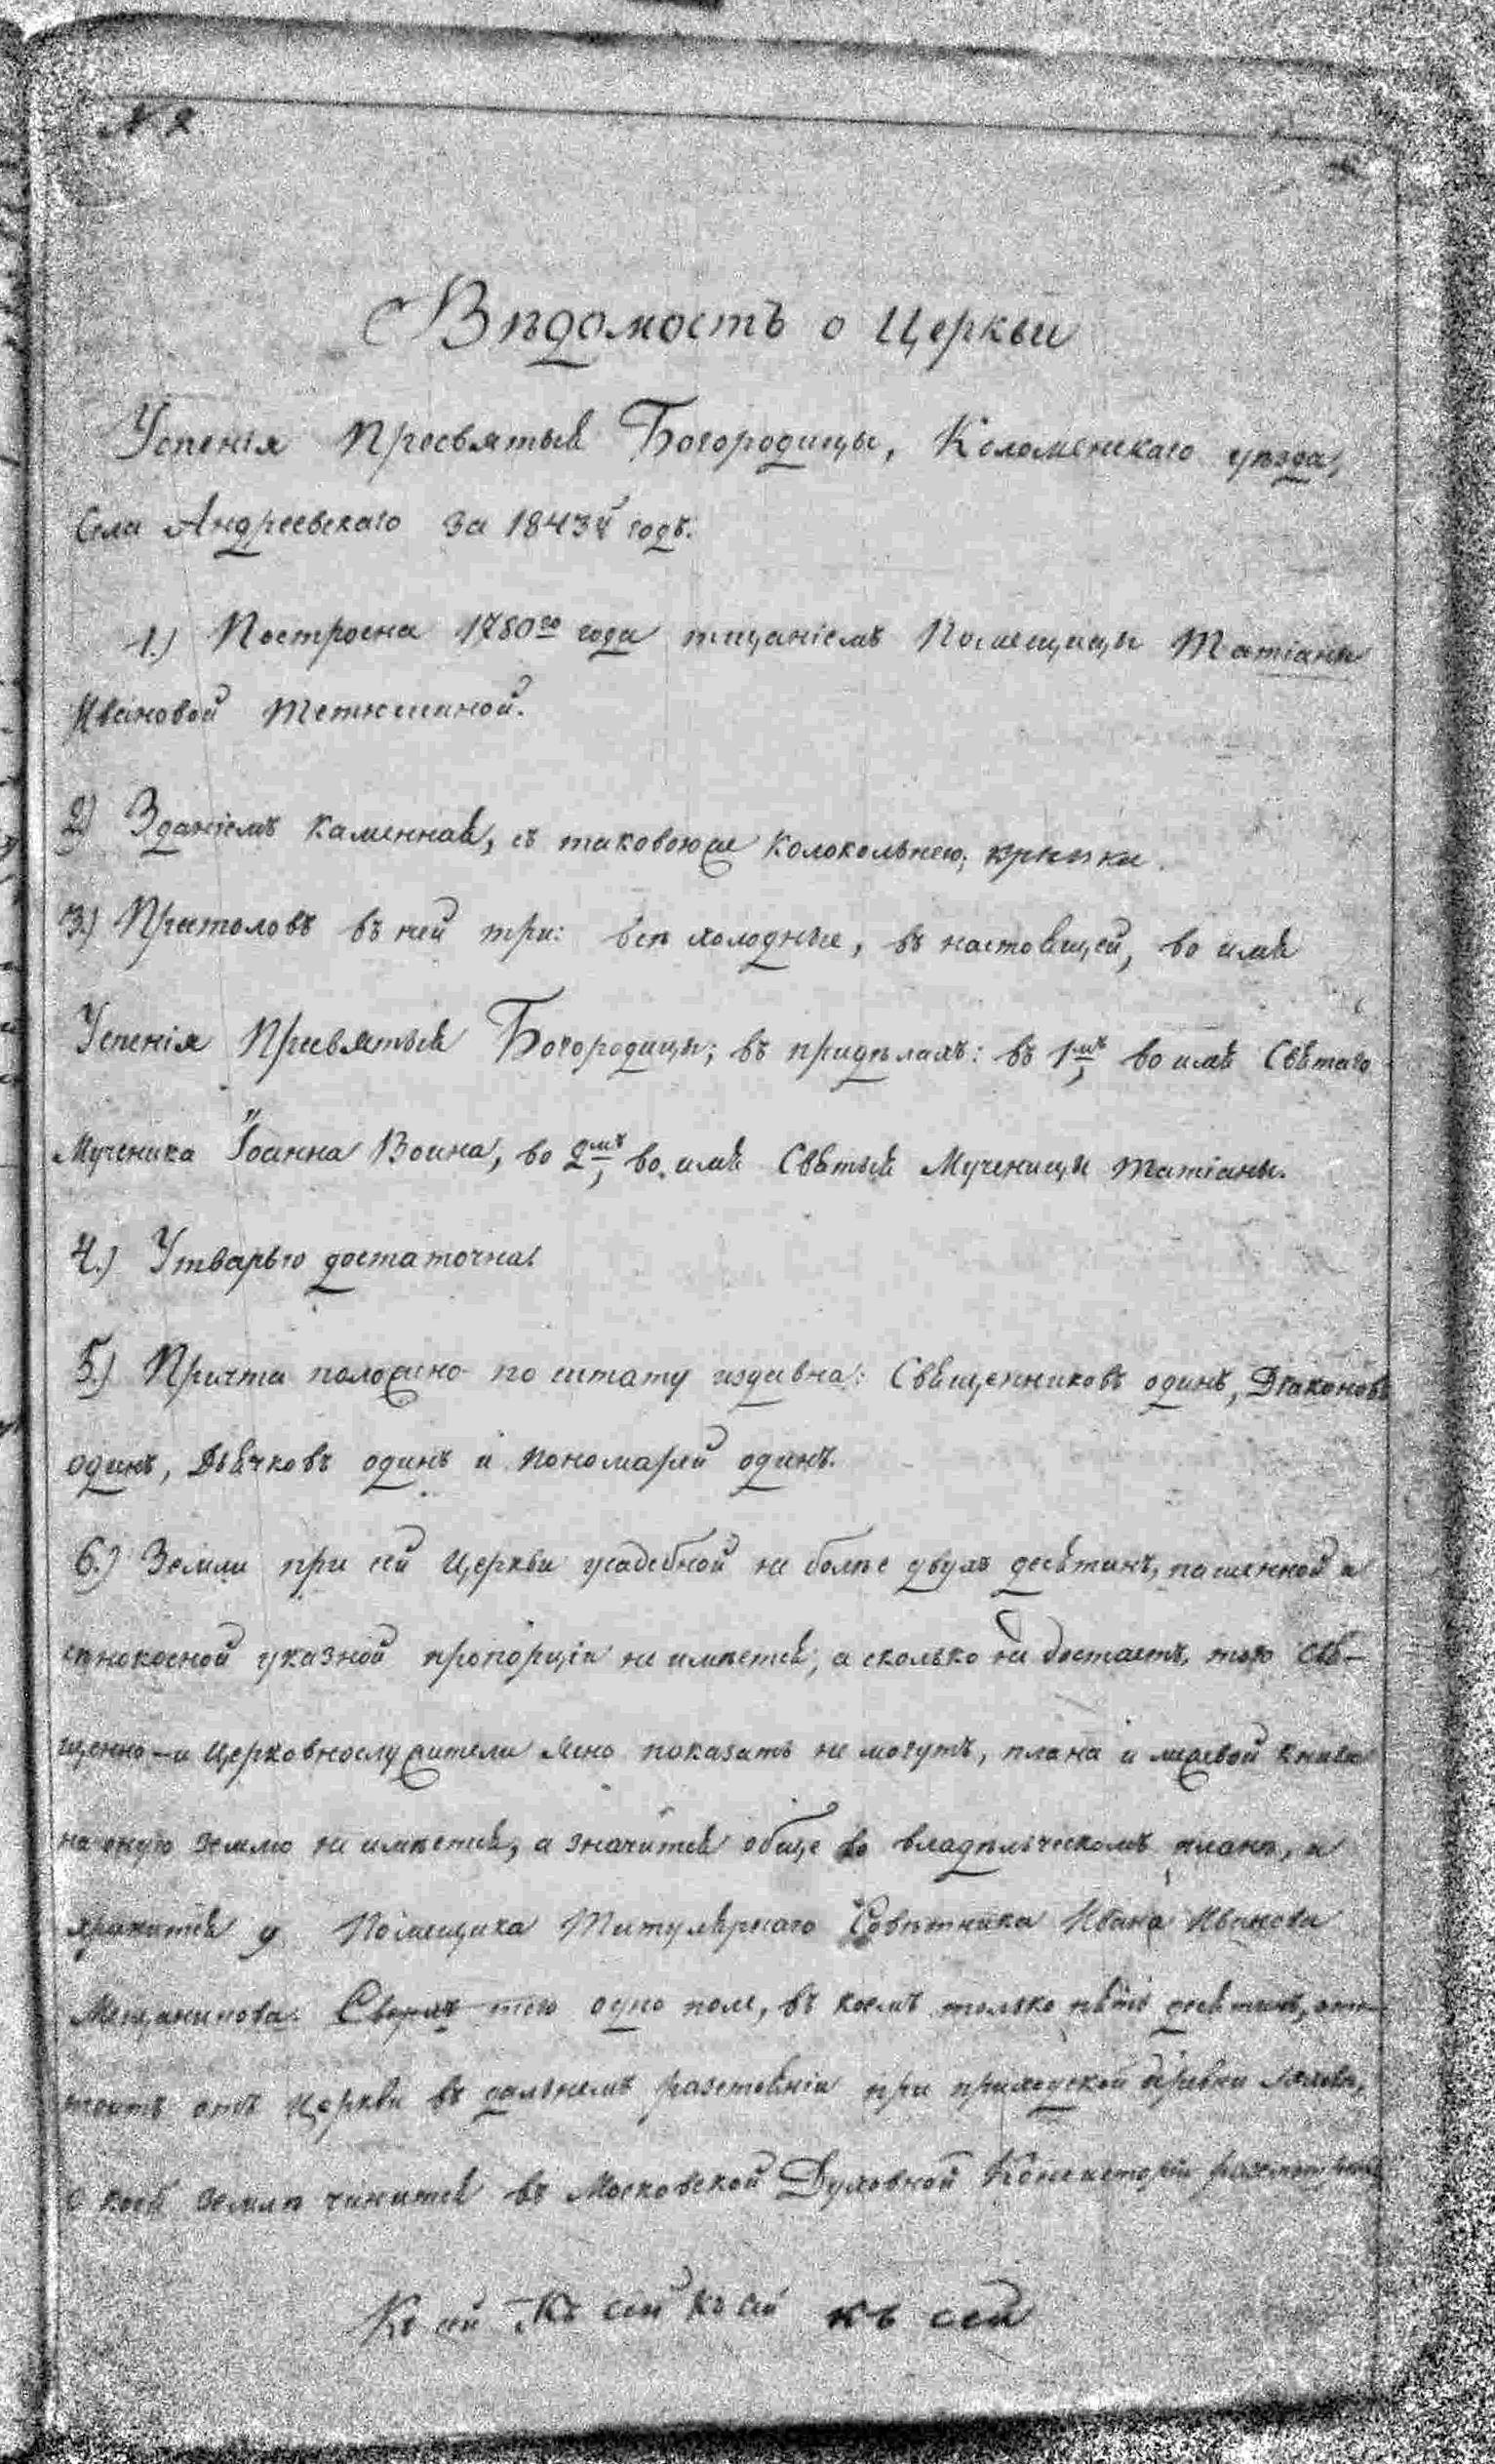 № 2
Вѣдомость о Церкви
Успенія Пресвятыя Богородицы, Коломенскаго уѣзда,
Села Андреевскаго за 1843й годъ.
1.) Построена 1780го года тщаніемъ Помещицы Татіаны
Ивановой Тетюшиной.
2.) Зданіемъ каменная, съ таковоюже колокольнею; крѣпка.
3.) Престоловъ въ ней три: всѣ холодные, въ настоящей, во имя
Успенія Пресвятыя Богородицы; въ придѣлахъ: въ 1мъ, во имя Святаго
Мученика Іоанна Воина, во 2мъ, во имя Святыя Мученицы Татіаны.
4.) Утварью достаточна.
5.) Причта положено по штату издавна: Священниковъ одинъ, Діаконовъ
одинъ, Дьячковъ одинъ и Пономарей одинъ.
6.) Земли при сей Церкви усадебной не болѣе двухъ десятинъ, пашенной и
сѣнокосной указной пропорціи не имѣется; а сколько не достаетъ, того Свя-
щенно-и Церковнослужители ясно показать не могутъ, плана и межевой книги
на оную землю не имѣется, а значится обще во владѣльческомъ планѣ, и
хранится у Помещика Титулярнаго Совѣтника Ивана Иванова
Мещанинова. Сверхъ того одно поле, въ коемъ только пять десятинъ, от-
стоитъ отъ Церкви въ дальнемъ разстояніи при приходской деревни
о коей землѣ чинится въ Московской Духовной Консисторіи
Къ сей Къ сей Къ сей къ сей